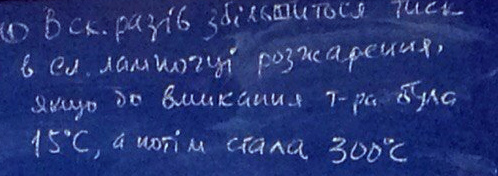 ① В ск. разів збільшиться тиск
в ел. лампочці розжарення,
якщо до вмикання т-ра була
15°C, а потім стала 300°C